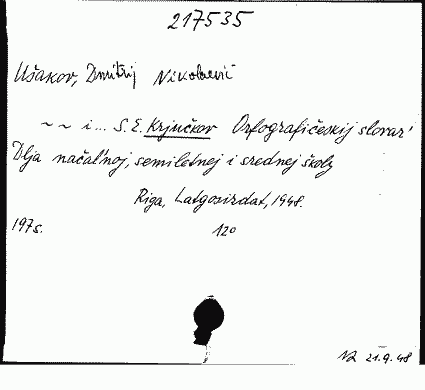 217535
Ušakov, Dmitrij Nikolaevič
~ ~ i... S.E. Krjučkov Orfografičeskij slovar'
Dlja načal'noj, semiletnej i srednej školy
Riga, Latgosizdat, 1948.
197s. 12°
21.9.48